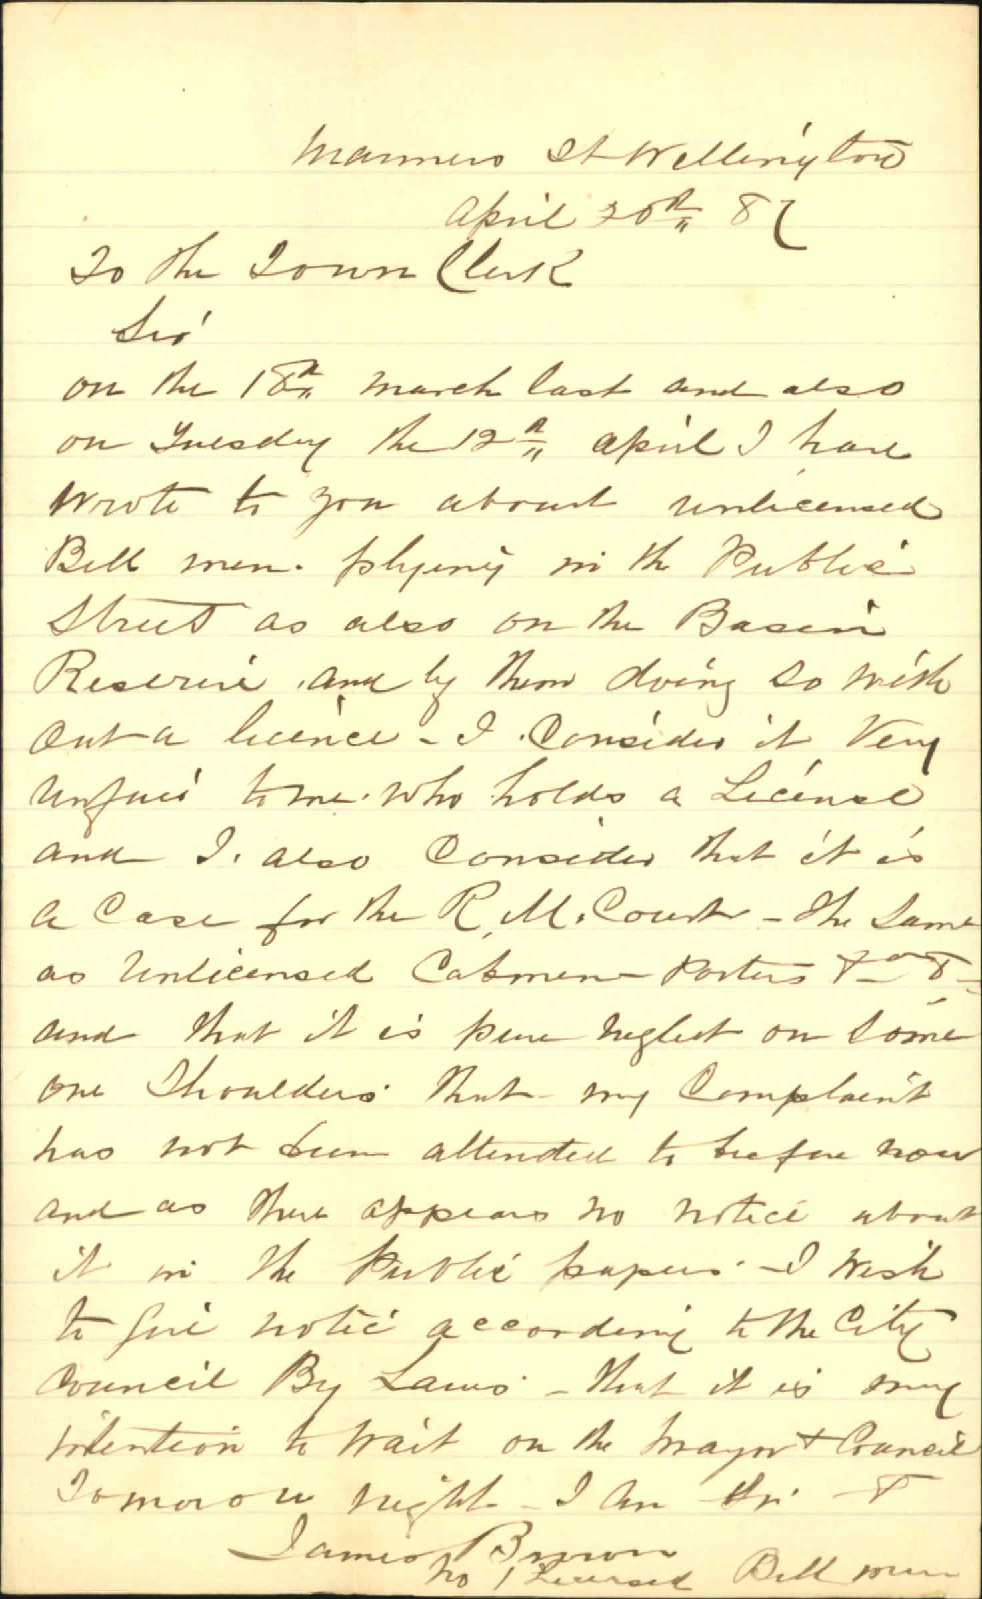 Manners St Wellington
April 20th 87
To the Town Clerk
Sir
on the 18th March last and also
on Tuesday the 12th april I have
Wrote to you about unlicensed
Bell men. plying in the Public
Street as also on the Basin
Reserve and by them doing so with
out a licence - I Consider it Very
Unfair to me who holds a License
and I. also Consider that it is
a Case for the R. M. Court - the Same
as Unlicensed Cabmen Porters
and that it is pure neglect on Some
one Shoulders that my Complaint
has not been attended to before now
and as there appears no notice about
it in the Public papers - I Wish
to give notice according to the City
Council By Laws - that it is my
intention to Wait on the Mayor + Council
Tomorow night - I am Sir
James Brown
No 1 Licensed Bell man